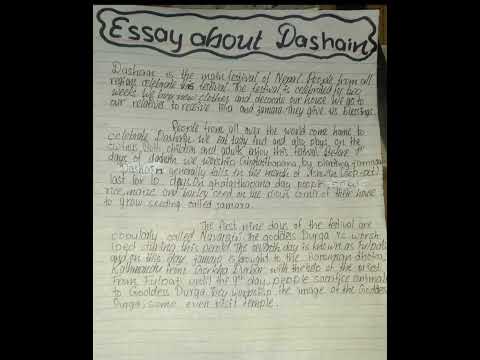 Essay about Dashain
Dashain is the main festival of Nepal. People from all
regions celebrate this festival. The festival is celebrated by two
weeks. We buy new clothes and decorate our house. We go to
our relatives to receive Tika and jamara. They give us blessings.
People from all over the world come home to
celebrate Dashain. We eat tasty food and also plays on the
swings. Both children and adults enjoy this festival. Before
days of dashain we worship Ghatasthapana, by planting jamara.
Dashain generally falls in the month of Ashwin (Sep-oct)
last for 10 days. On ghatasthapana day, people sow
rice, maize and barley seed in the pious corner of their house
to grow seeding called jamara.
The first nine days of the festival are
popularly called Navaratri. The goddess Durga is worsh
iped during this period. The seventh day is known as Fulpati
and on this day jamara is brought to the Hanuman dhoka,
Kathmandu from Gorkha Durbar with the help of the priest.
From Fulpati until the 9th day, people sacrifice animals
to Goddess Durga. They worship the image of the Goddess
Durga, some even visit temple.